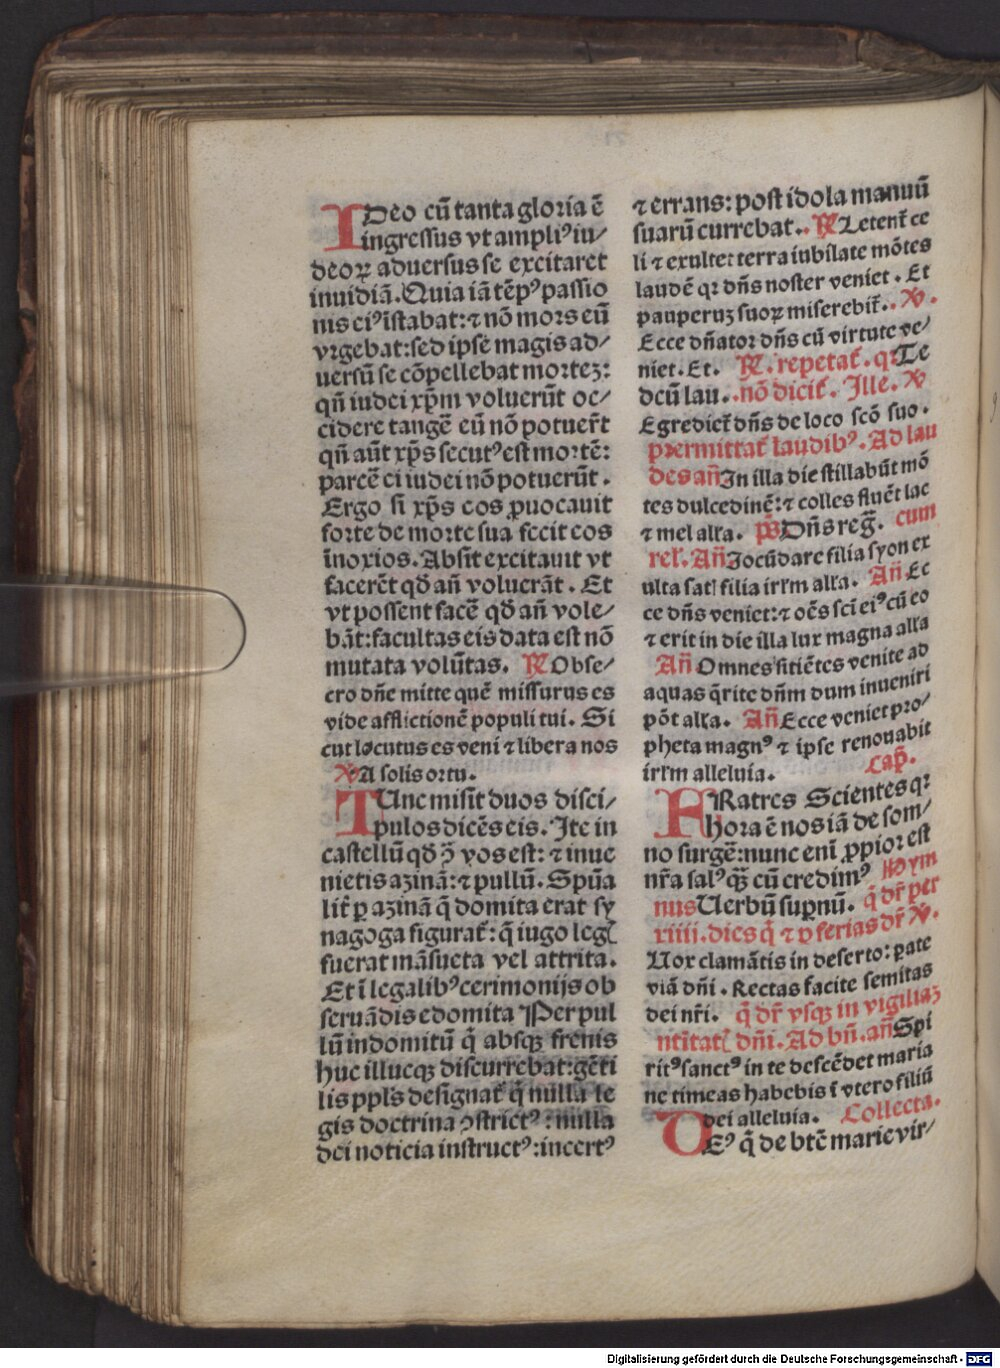 IDeo cū tanta gloria ē
ingressus vt ampliꝰ iu/
deoꝝ aduersus se excitaret
inuidiā. Quia iā tēpꝰ passio
nis eiꝰ īstabat: ⁊ nō mors eū
vrgebat: sed ipse magis ad/
uersū se cōpellebat mortez:
qn̄ iudei xp̄m voluerūt oc/
cidere tangē eū nō potuer̄t
qn̄ aūt xp̄s secutꝰ est mortē:
parcē ei iudei nō potuerūt.
Ergo si xp̄s eos ꝓuocauit
forte de morte sua fecit eos
īnoxios. Absit excitauit vt
facerēt qd̄ an̄ voluerāt. Et
vt possent facē qd̄ an̄ vole/
bāt: facultas eis data est nō
mutata volūtas. R̄ Obse/
cro dn̄e mitte quē missurus es
vide afflictionē populi tui. Si
cut locutus es veni ⁊ libera nos
℣ A solis ortu.
TUnc misit duos disci/
pulos dicēs eis. Ite in
castellū qd̄ ↄ̄ vos est: ⁊ inue
nietis azinā: ⁊ pullū. Spūa
lit̄ ꝑ azinā q̄ domita erat sy
nagoga figurat̄: q̄ iugo legꝭ
fuerat māsueta vel attrita.
Et ī legalibꝰ cerimonijs ob
seruādis edomita Per pul
lū indomitū q̄ absqꝫ frenis
huc illucqꝫ discurrebat: gēti
lis ppl̄s designat̄ q̄ nulla le
gis doctrina ↄstrictꝰ: nulla
dei noticia instructꝰ: incertꝰ
⁊ errans: post idola manuū
suarū currebat. R̄ Letent̄ ce
li ⁊ exultet terra iubilate mōtes
laudē qꝛ dn̄s noster veniet. Et
pauperuꝫ suoꝝ miserebit̄. ℣.
Ecce dn̄ator dn̄s cū virtute ve/
niet. Et. R̄. repetat̄. qꝛ Te
deū lau. nō dicit̄. Ille. ℣
Egrediet̄ dn̄s de loco scō suo.
premittat̄ laudibꝰ. Ad lau
des an̄ In illa die stillabūt mō
tes dulcedinē: ⁊ colles fluēt lac
⁊ mel alľa. ps̄ Dn̄s reḡ. cum
rel̄. An̄ Iocūdare filia syon ex
ulta sat̄ filia irľm alľa. An̄ Ec
ce dn̄s veniet: ⁊ oēs scī eiꝰ cū eo
⁊ erit in die illa lux magna alľa
An̄ Omnes sitiētes venite ad
aquas q̄rite dn̄m dum inueniri
pōt alľa. An̄ Ecce veniet pro/
pheta magnꝰ ⁊ ipse renouabit
irľm alleluia. Cap̄.
FRatres Scientes qꝛ
hora ē nos iā de som/
no surgē: nunc enī ꝓpior est
nr̄a salꝰ qꝫ cū credimꝰ Hym
nus Uerbū supnū. q̄ dr̄ per
xiiii. dies q̄ ⁊ ꝑ ferias dr̄ ℣.
Uox clamātis in deserto: ꝑate
viā dn̄i. Rectas facite semitas
dei nr̄i. q̄ dr̄ vsqꝫ in vigiliaꝫ
ntītatꝭ dn̄i. Ad bn̄. an̄ Spi
ritꝰ sanctꝰ in te descēdet maria
ne timeas habebis ī vtero filiū
dei alleluia. Collecta.
DEꝰ q̄ de btē marie vir/
Digitalisierung gefördert durch die Deutsche Forschungsgemeinschaft - DFG